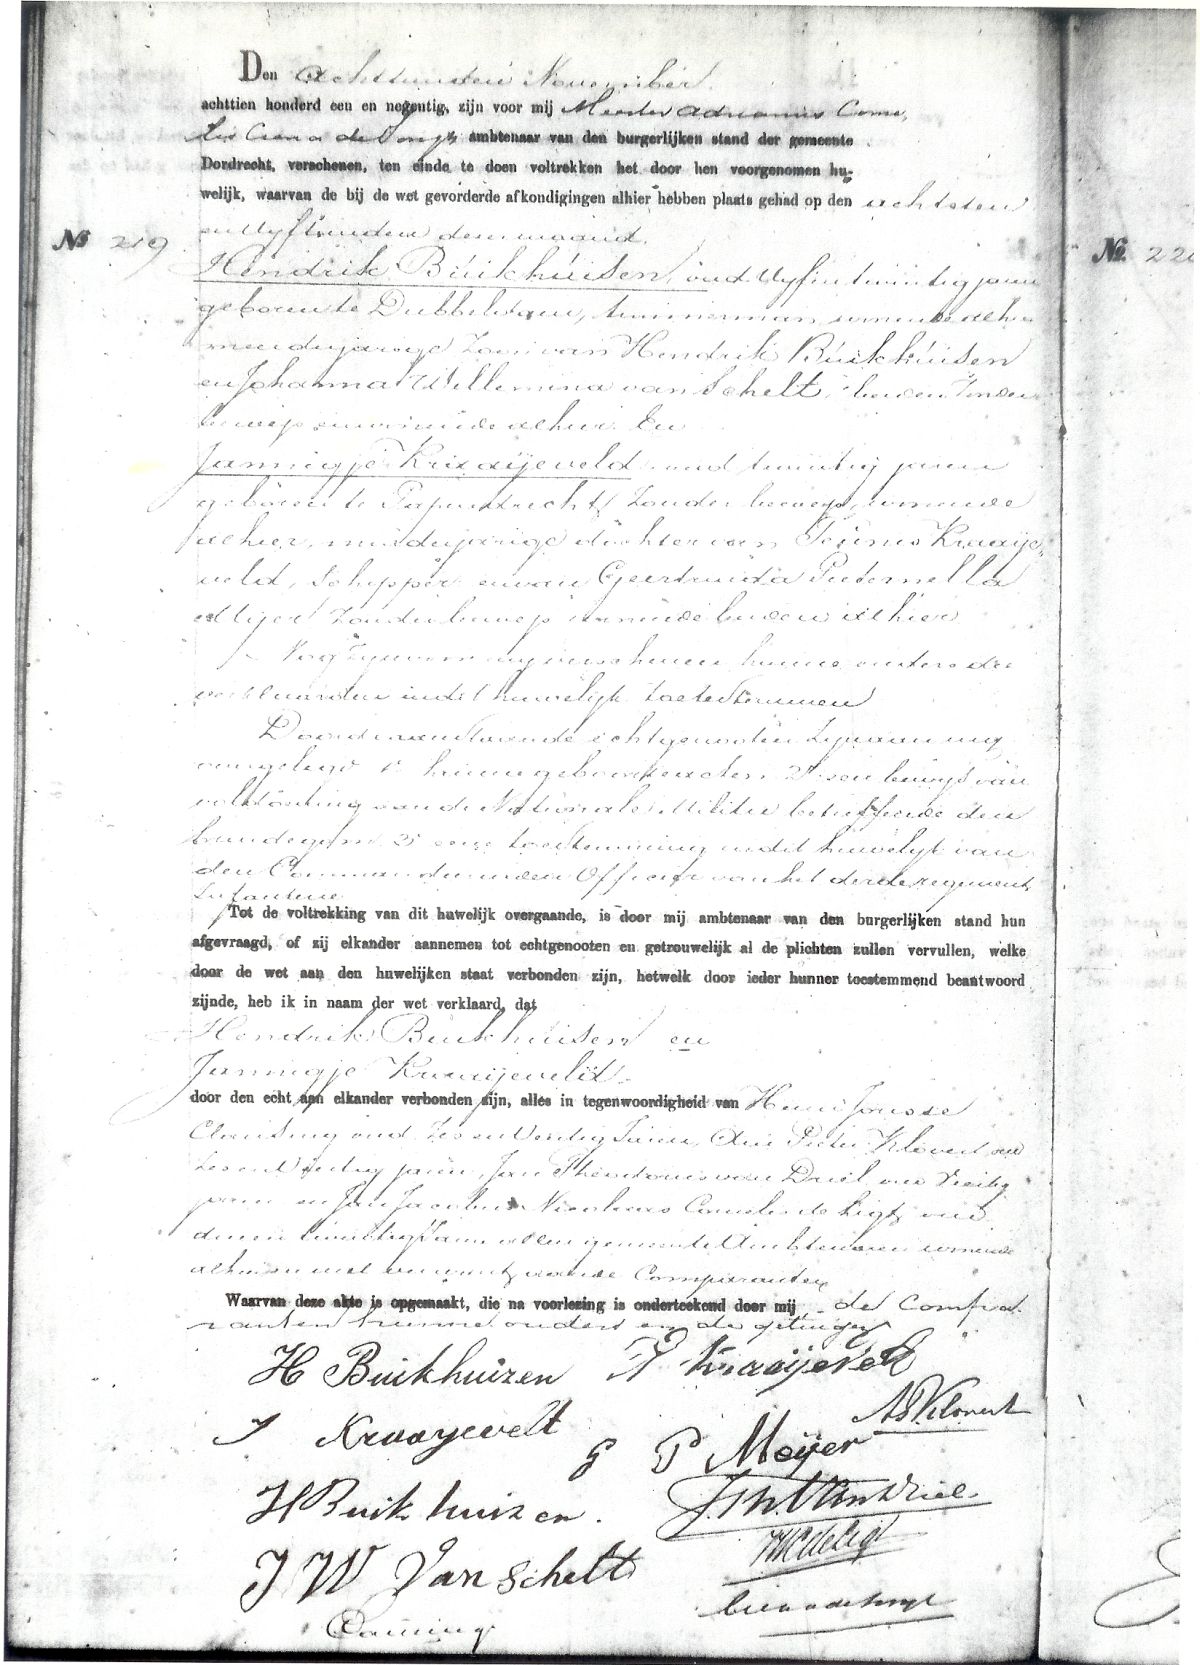 Den achttienden November
achttien honderd een en negentig, zijn voor mij Meester Adrianus Corne-
lis Crena de Iongh ambtenaar van den burgerlijken stand der gemeente
Dordrecht, verschenen, ten einde te doen voltrekken het door hen voorgenomen hu-
welijk, waarvan de bij de wet gevorderde afkondigingen alhier hebben plaats gehad op den achtsten
en vyftienden dezer maand.
No 219
No. 220
Hendrik Buikhuisen, oud vyfentwintig jaren
geboren te Dubbeldam, timmerman wonende alhier
meerderjarige zoon van Hendrik Buikhuisen
en Johanna Willemina van Schelt, beiden zonder
beroep en wonende alhier En
Jannigje Kraaijeveld oud twintig jaren
geboren te Papendrecht, zonder beroep, wonende
alhier, minderjarige dochter van Teunis Kraaije-
veld, schipper en van Geertruida Pieternella
Meijer zonder beroep wonende beiden alhier
Nog zyn voor my verschenen hunne ouders die
verklaarden in dit huwelijk toetestemmen
De aanstaande echtgenooten zyn aan my
overgelegd 1o hunne geboorteacten. 2o een bewys van
voldoening aan de Nationale Militie betreffende den
bruidegom 3o eene toestemming in dit huwelijk van
den Commandeerenden Officier van het derde regiment
Infanterie
Tot de voltrekking van dit huwelijk overgaande, is door mij ambtenaar van den burgerlijken stand hun
afgevraagd, of zij elkander aannemen tot echtgenooten en getrouwelijk al de plichten zullen vervullen, welke
door de wet aan den huwelijken staat verbonden zijn, hetwelk door ieder hunner toestemmend beantwoord
zijnde, heb ik in naam der wet verklaard, dat
Hendrik Buikhuisen en
Jannigje Kraaijeveld
door den echt aan elkander verbonden zijn, alles in tegenwoordigheid van
oud zes en veertig jaren, Arie Pieter Klovert oud
zes en jaren, Jan Theodorus van Driel oud dertig
jaren en Jan Jacobus Nicolaas Cornelis de Ligt, oud
drie en twintig jaren allen gemeente Ambtenaren wonende
alhier en niet verwant aan de Comparanten
Waarvan deze akte is opgemaakt, die na voorlezing is onderteekend door mij, de Compa-
ranten hunne ouders en de getuigen
H Buikhuizen
T Kraaijeveld
J Kraayevelt
AP Klovert
G P Meijer
H Buikhuizen.
J.Th. Van Driel.
J W Van Schelt
de Ligt
Crena de Iongh